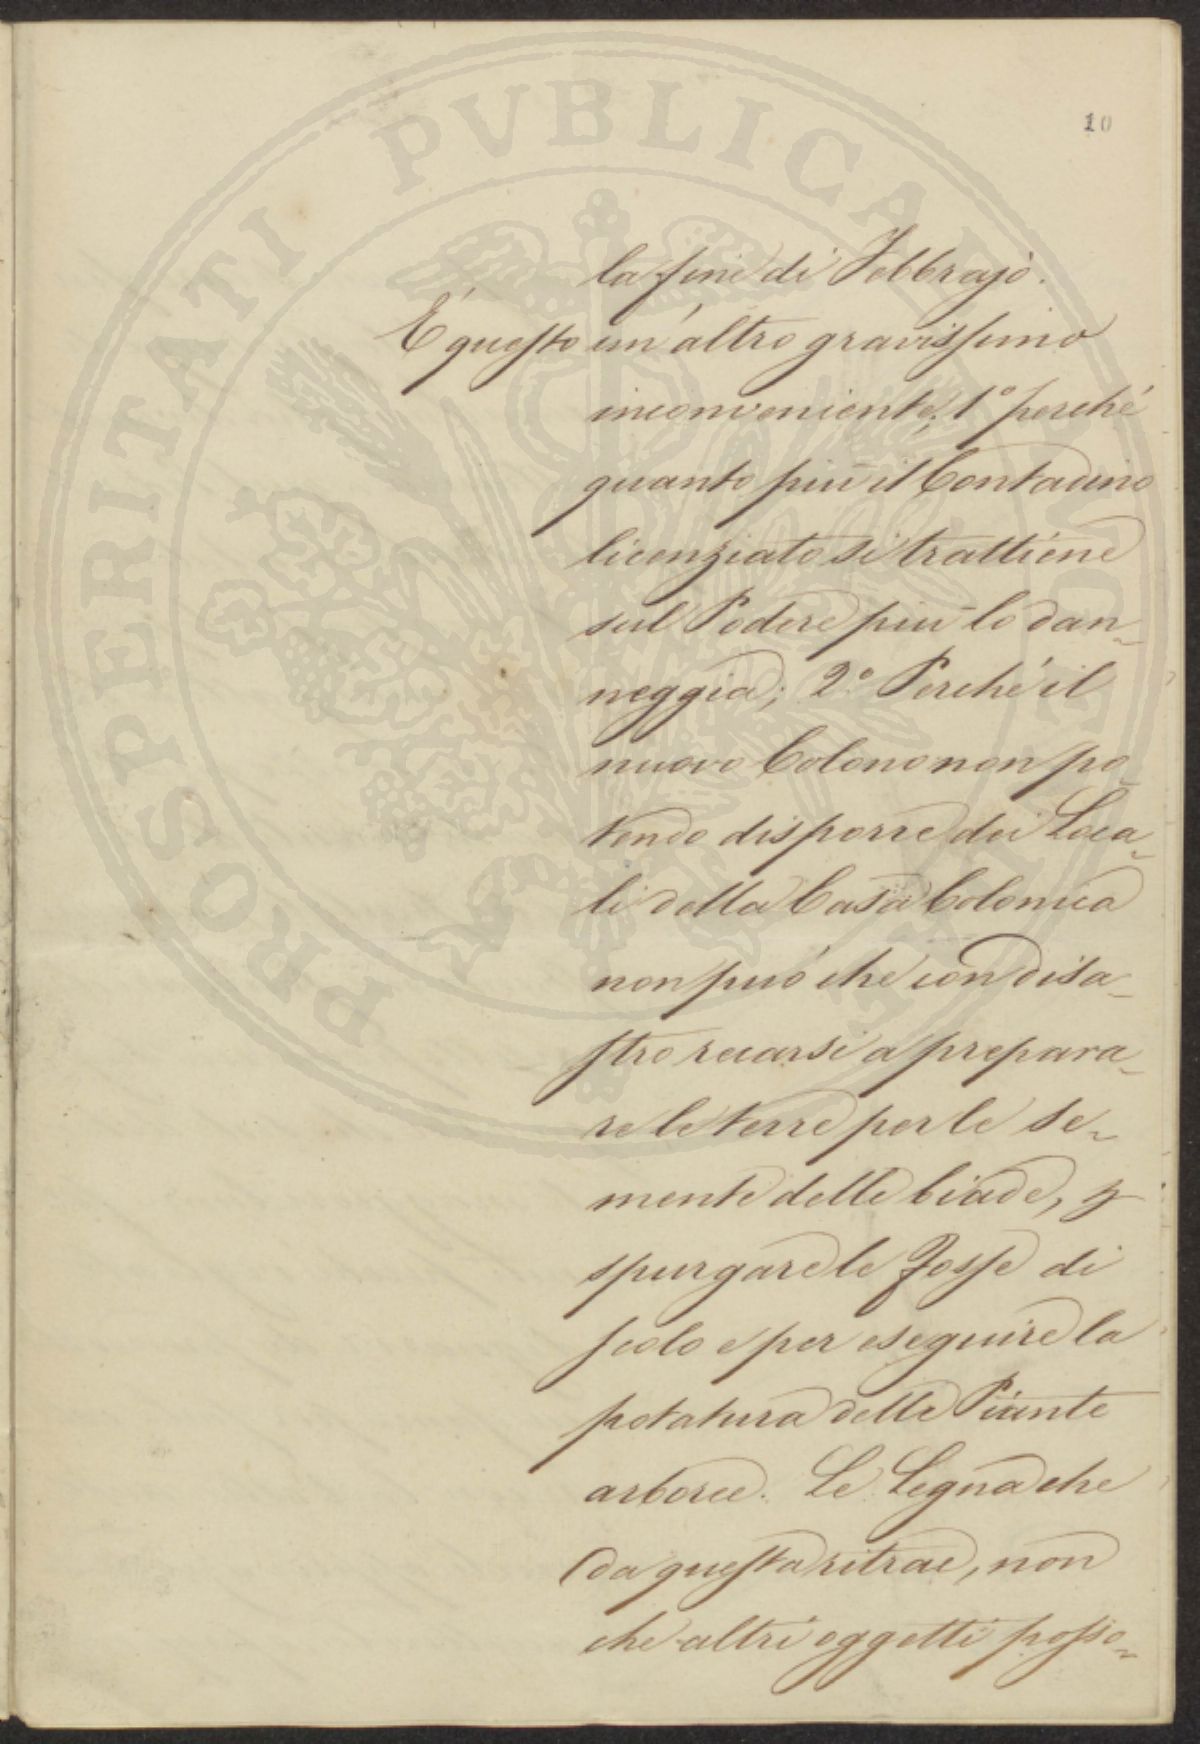 10
la fine di Febbrajo.
È questo un'altro gravissimo
inconveniente, 1º perché
quanto più il Contadino
licenziato si trattiene
sul Podere più lo dan-
neggia; 2º Perché il
nuovo Colono non po-
tendo disporre dei Loca-
li della Casa Colonica
non può che con disa-
stro recarsi a prepara-
re le terre per le se-
mente delle biade, 
spurgare le Fosse di
scolo e per eseguire la
potatura delle Piante
arboree. Le Legna che
da questa ritrae, non
che altri oggetti posso-
PROSPERITATI PVBLICAE